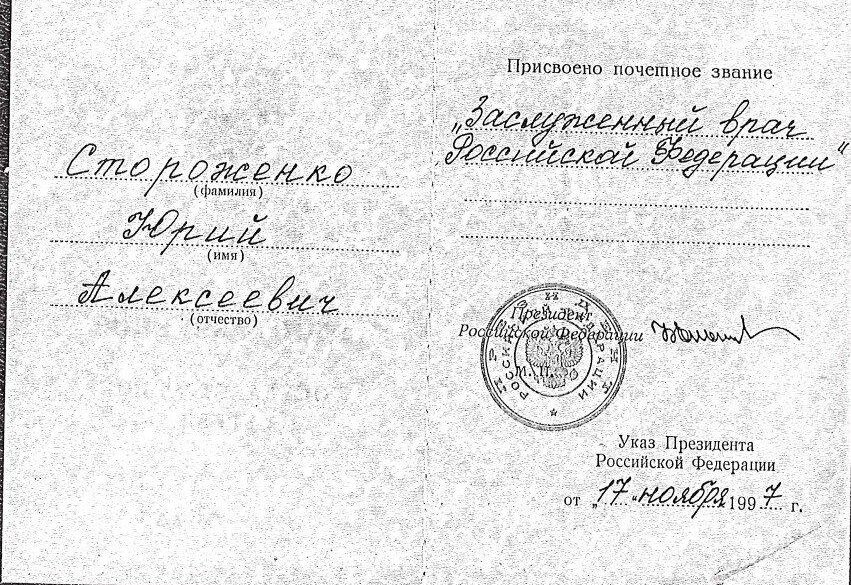 Стороженко
(фамилия)
Юрий
(имя)
Алексеевич
(отчество)
Присвоено почетное звание
„Заслуженный врач
Российской Федерации“
Президент
Российской Федерации
М.П.
ПРЕЗИДЕНТ
РОССИЙСКОЙ ФЕДЕРАЦИИ
Указ Президента
Российской Федерации
от „17“ ноября 1997 г.